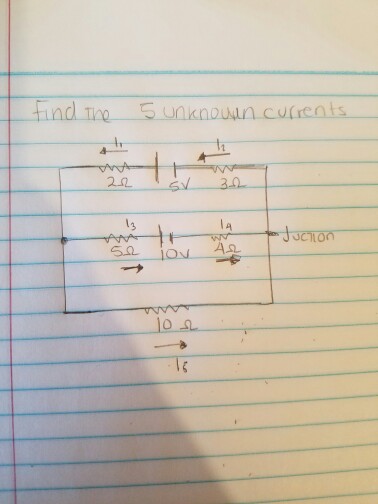 Find The 5 unknouwn currents
I₁ I₂
2Ω 5V 3Ω
I₃ I₄
5Ω 10V 4Ω Juction
10 Ω
I₅